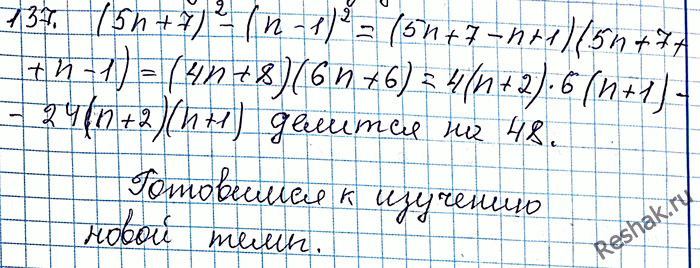 137. (5n+7)² - (n-1)² = (5n+7-n+1)(5n+7+
+n-1) = (4n+8)(6n+6) = 4(n+2)·6(n+1) -
- 24(n+2)(n+1) делится на 48.
Готовимся к изучению
новой темы.
Reshak.ru